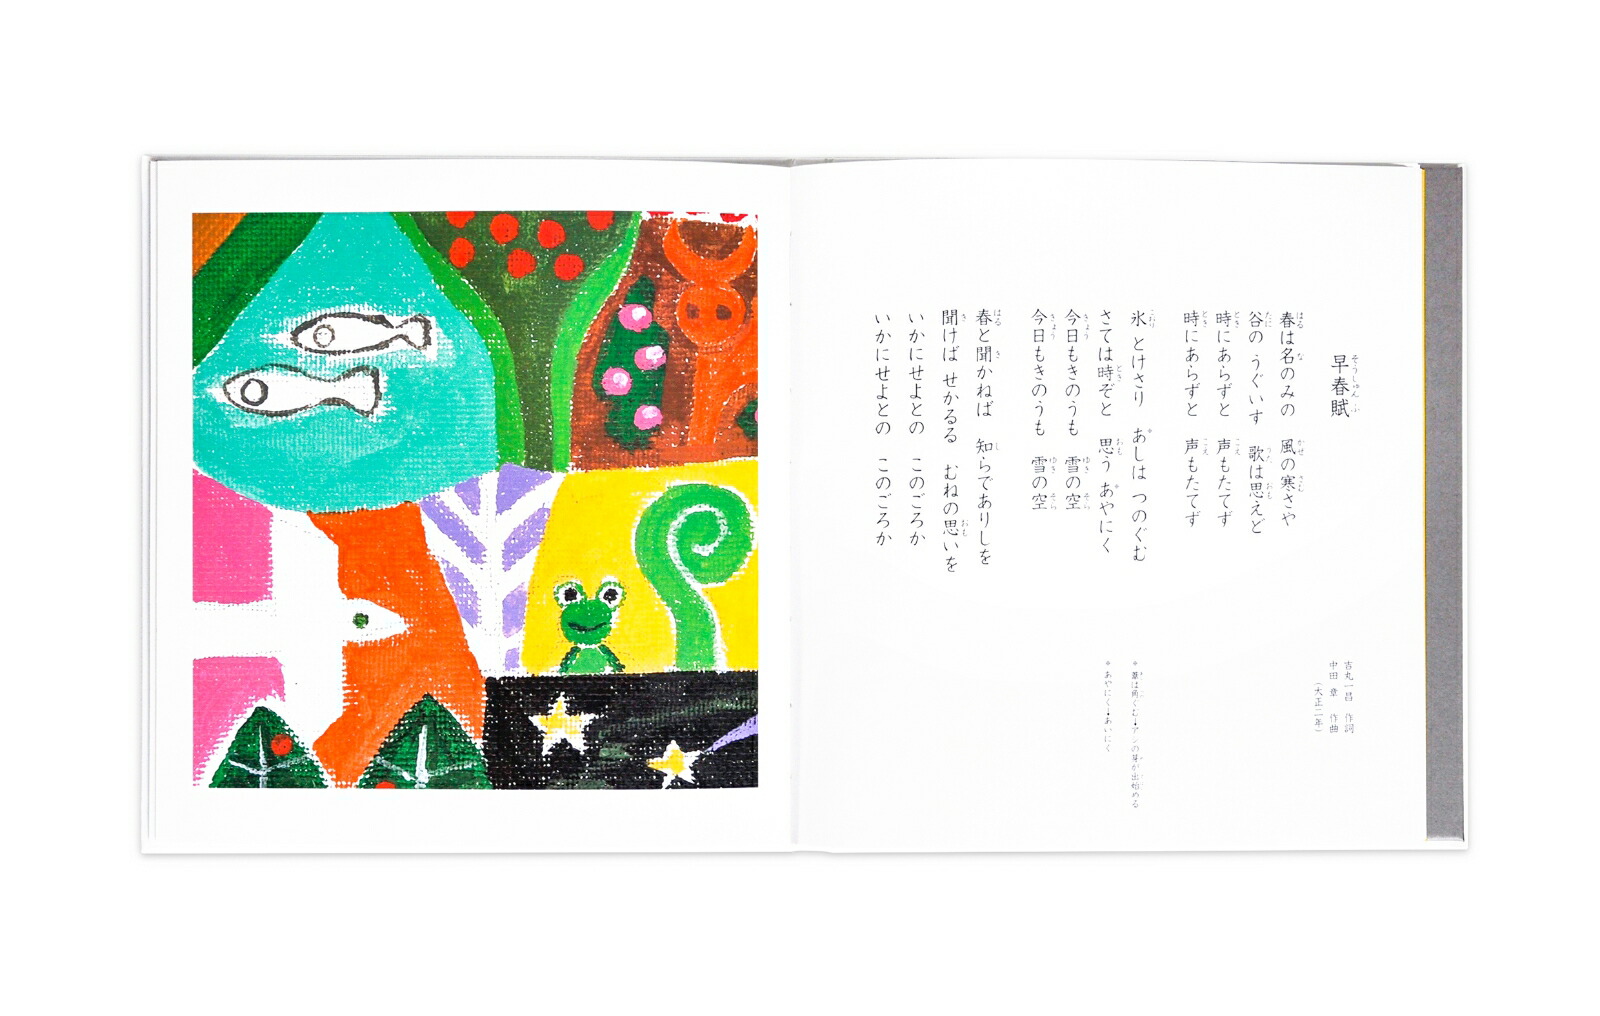 早春賦
吉丸一昌 作詞
中田 章 作曲
(大正二年)
春は名のみの 風の寒さや
谷の うぐいす 歌は思えど
時にあらずと 声もたてず
時にあらずと 声もたてず
氷 とけさり あしは つのぐむ
さては時ぞと 思う あやにく
今日もきのうも 雪の空
今日もきのうも 雪の空
春と聞かねば 知らでありしを
聞けば せかるる むねの思いを
いかにせよとの このごろか
いかにせよとの このごろか
*葦は角ぐむ→アシの芽が出始める
*あやにく→あいにく